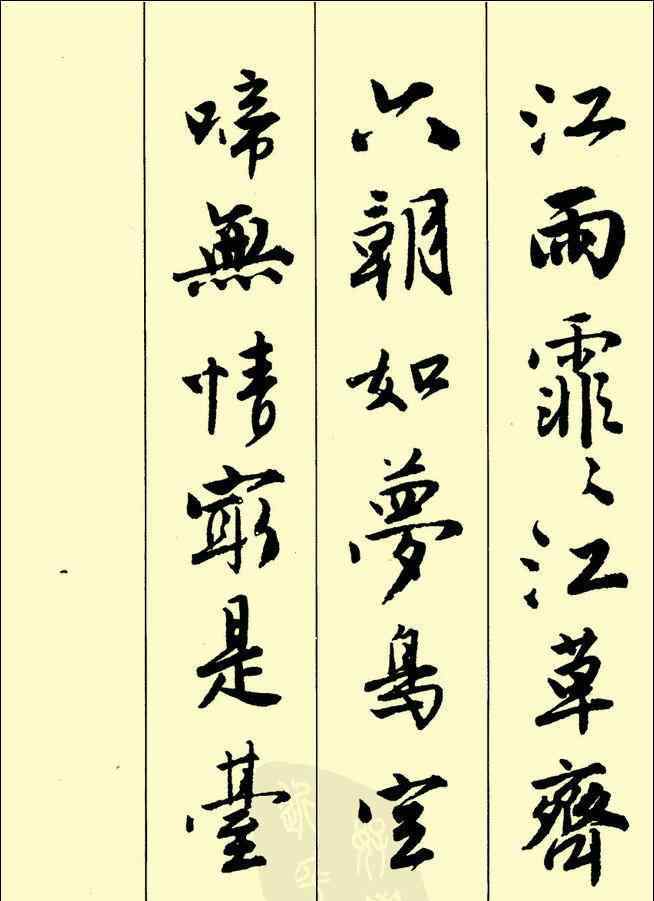 江雨霏々江草齊
六朝如夢鳥空
啼無情最是臺